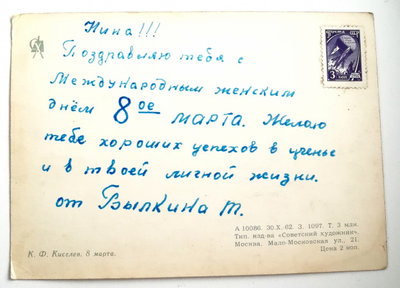 Нина!!!
Поздравляю тебя с
Международным женским
днём 8ое МАРТА. Желаю
тебе хороших успехов в ученье
и в твоей личной жизни.
от Былкина Т.
А 10086. 30.X.-62. З. 1097. Т. 3 млн.
Тип. изд-ва «Советский художник».
Москва. Мало-Московская ул., 21.
Цена 2 коп.
К. Ф. Киселев. 8 марта.